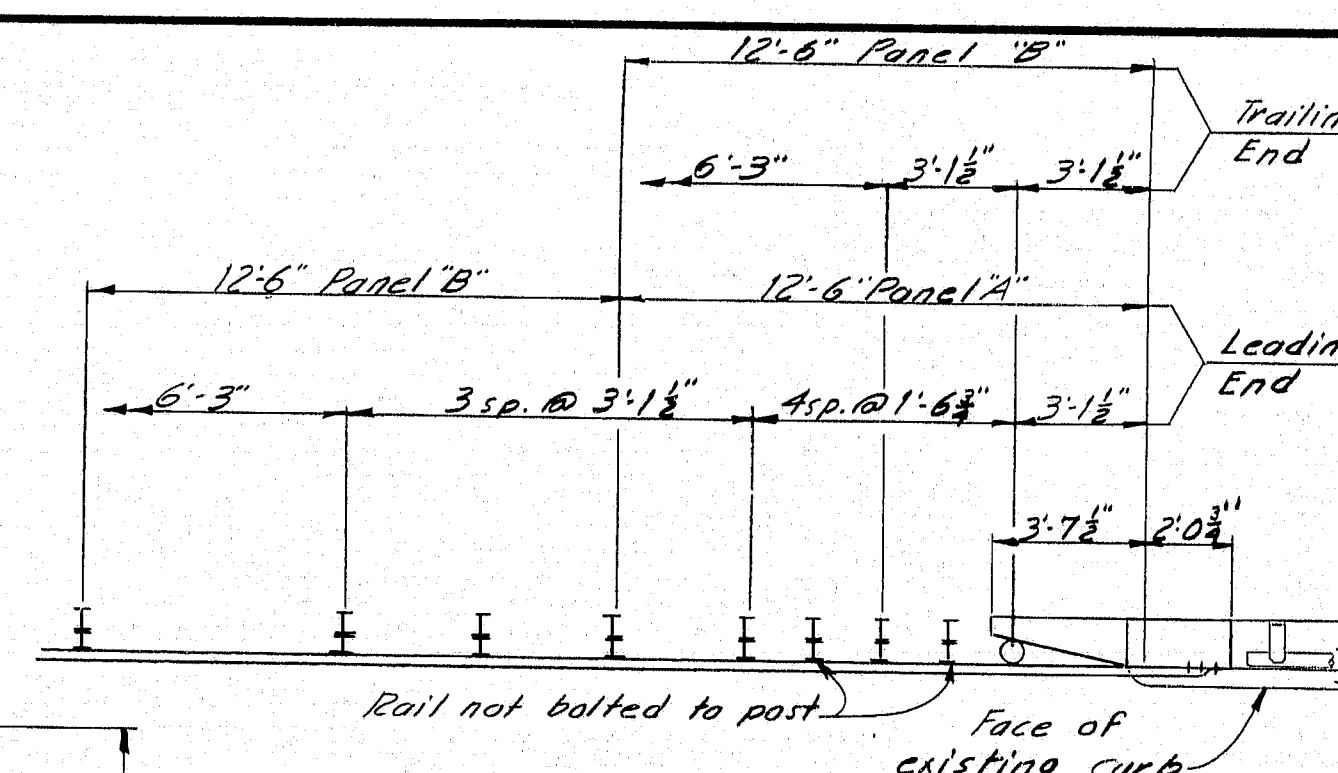 12'-6" Panel "B"
Trailin
End
6'-3" 3'-1½" 3'-1½"
12'-6" Panel "B" 12'-6" Panel "A"
Leadin
End
6'-3" 3 sp. @ 3'-1½" 4 sp. @ 1'-6¾" 3'-1½"
3'-7½" 2'-0¾"
Rail not bolted to post
Face of
existing curb